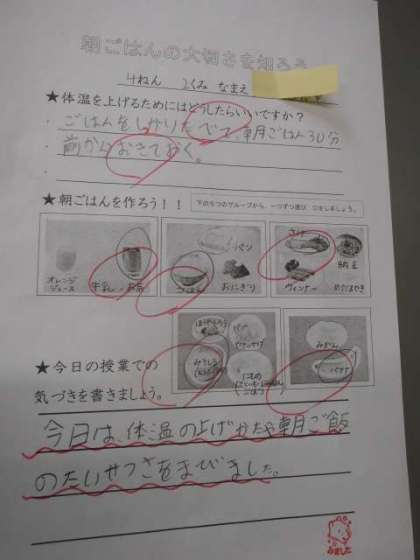 朝ごはんの大切さを知ろう
4ねん 2くみ なまえ
★体温を上げるためにはどうしたらいいですか？
ごはんをしっかりたべて、朝ごはん30分
前からおきておく。
★朝ごはんを作ろう！！ 下の5つのグループから、一つずつ選び ○をしましょう。
オレンジジュース 牛乳 お茶
ごはん パン おにぎり
さけ 納豆 ウィンナー めだまやき
みそしる
みかん バナナ
★今日の授業での
気づきを書きましょう。
今日は、体温の上げかたや朝ご飯
のたいせつさをまびました。
みました